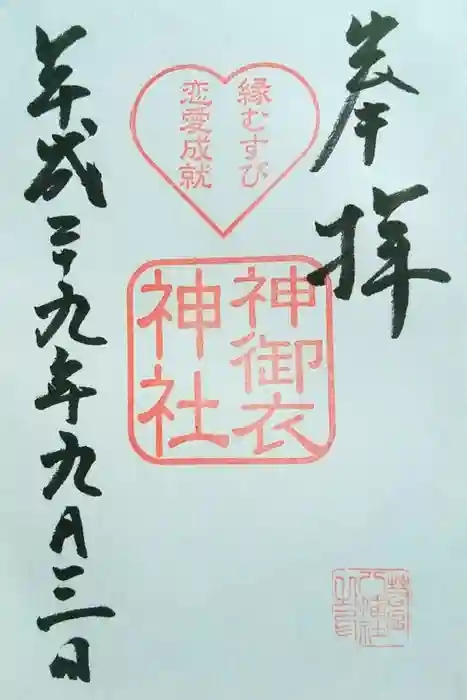 奉拝
縁むすび
恋愛成就
神御衣
神社
平成二十九年九月三日